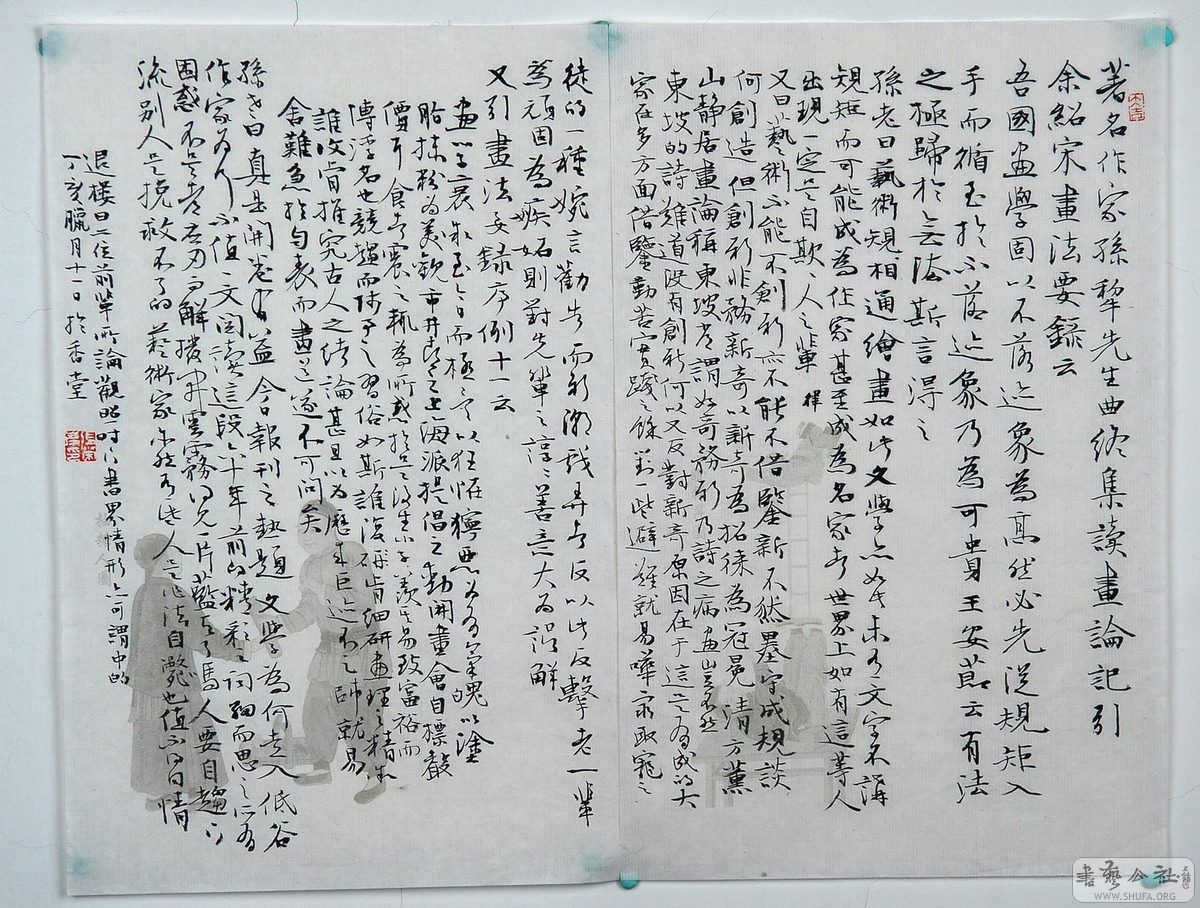 著名作家孫犁先生曲終集讀畫論記引
余紹宋畫法要錄云
吾國畫學固以不落迹象為高然必先從規矩入
手而循至於不落迹象乃為可貴王安節云有法
之極歸於無法斯言得之
孫老曰藝術規相通繪畫如此文學亦如此未有文字不講
規矩而可能成為作家甚至成為名家者世界上如有這等人
出現一定是自欺人之輩
律
又曰藝術不能不創新亦不能不借鑒新不然墨守成規談
何創造但創新非務新奇以新奇為招徠為冠冕清方薰
山靜居畫論稱東坡嘗謂好奇務新乃詩之病畫豈不然
東坡的詩難道沒有創新何以又反對新奇原因在于這是有成的大
家在多方面借鑒勤苦實踐之餘對一些避難就易嘩眾取寵之
徒的一種婉言勸告而新潮
反以此反擊老一輩
為頑固為嫉妬則對先輩之諄諄善言大為誤解
又引畫法要錄序例十一云
畫之衰
至今日而極
以狂怪獰惡為
氣魄以塗
脂抹粉為美觀市井
之上海派提倡之動開畫會自標聲
價耳食者震之輒為所惑於是後生小子羨其易致富裕而
傳浮名也競趨而師事之習俗如斯誰復研肯細研畫理之精
誰復肯推究古人之緒論甚且以為歷來巨迹不足師就易
舍難急於自表而畫道遂不可問矣
孫老曰真是開卷有益今日報刊之熱題文學為何走入低谷
作家為何不值一文閱讀這段六十年前的精彩之詞細而思之
困惑
解撥開雲霧
見一片藍天了嗎人要自趨
流別人是挽救不了的藝術家
人
法自斃也值不得同情
退樓曰二位前輩所論觀照一時之書界情形亦可謂中的
丁亥臘月十一日於香堂
書藝公社
WWW.SHUFA.ORG